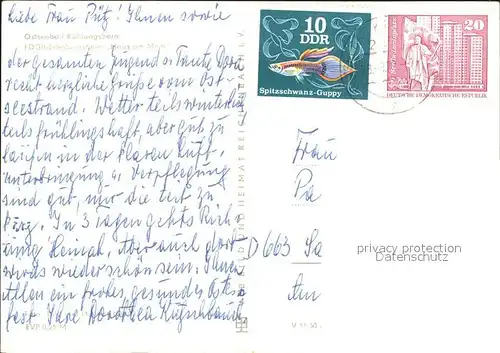 Liebe Frau Pütz! Ihnen sowie
Ostseebad Kühlungsborn
der gesamten Jugend u. Tante Dora
recht herzliche Grüße vom Ost-
seestrand. Wetter teils winterlich
teils frühlingshaft, aber gut zu
laufen in der klaren Luft.
Unterbringung u. Verpflegung
sind gut, nur die Zeit zu
kurz. In 3 Tagen gehts Rich-
tung Heimat. Aber auch dort
wirds wieder schön sein. Ihnen
Allen ein frohes, gesundes Oster-
fest Ihre Dorothea
EVP 0,25 M
BILD UND HEIMAT REICHENBACH I. V.
10
DDR
Spitzschwanz-Guppy
20
DEUTSCHE DEMOKRATISCHE REPUBLIK
Frau
Pa
D 663 Sa
Am
privacy protection
Datenschutz